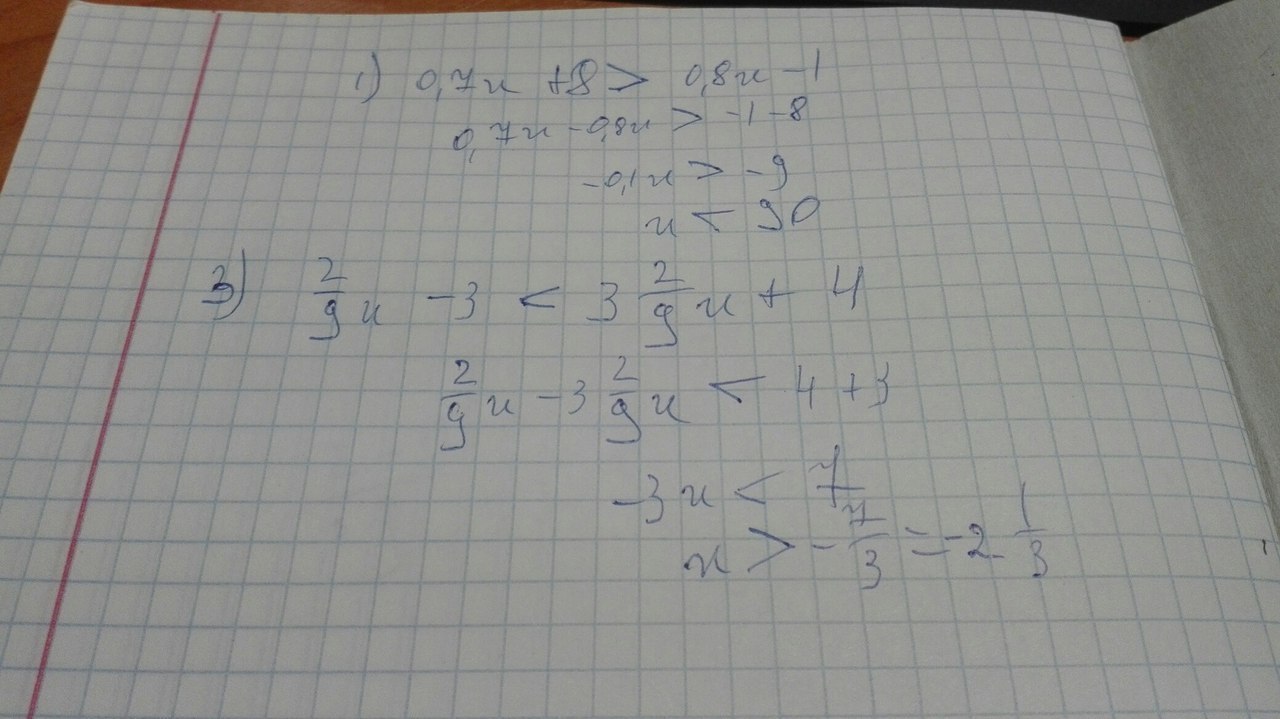 1) 0,7x +8 > 0,8x -1
0,7x -0,8x > -1 -8
-0,1x > -9
x < 90
3) 2/9 x -3 < 3 2/9 x + 4
2/9 x -3 2/9 x < 4 +3
-3x < 7
x > - 7/3 = -2 1/3